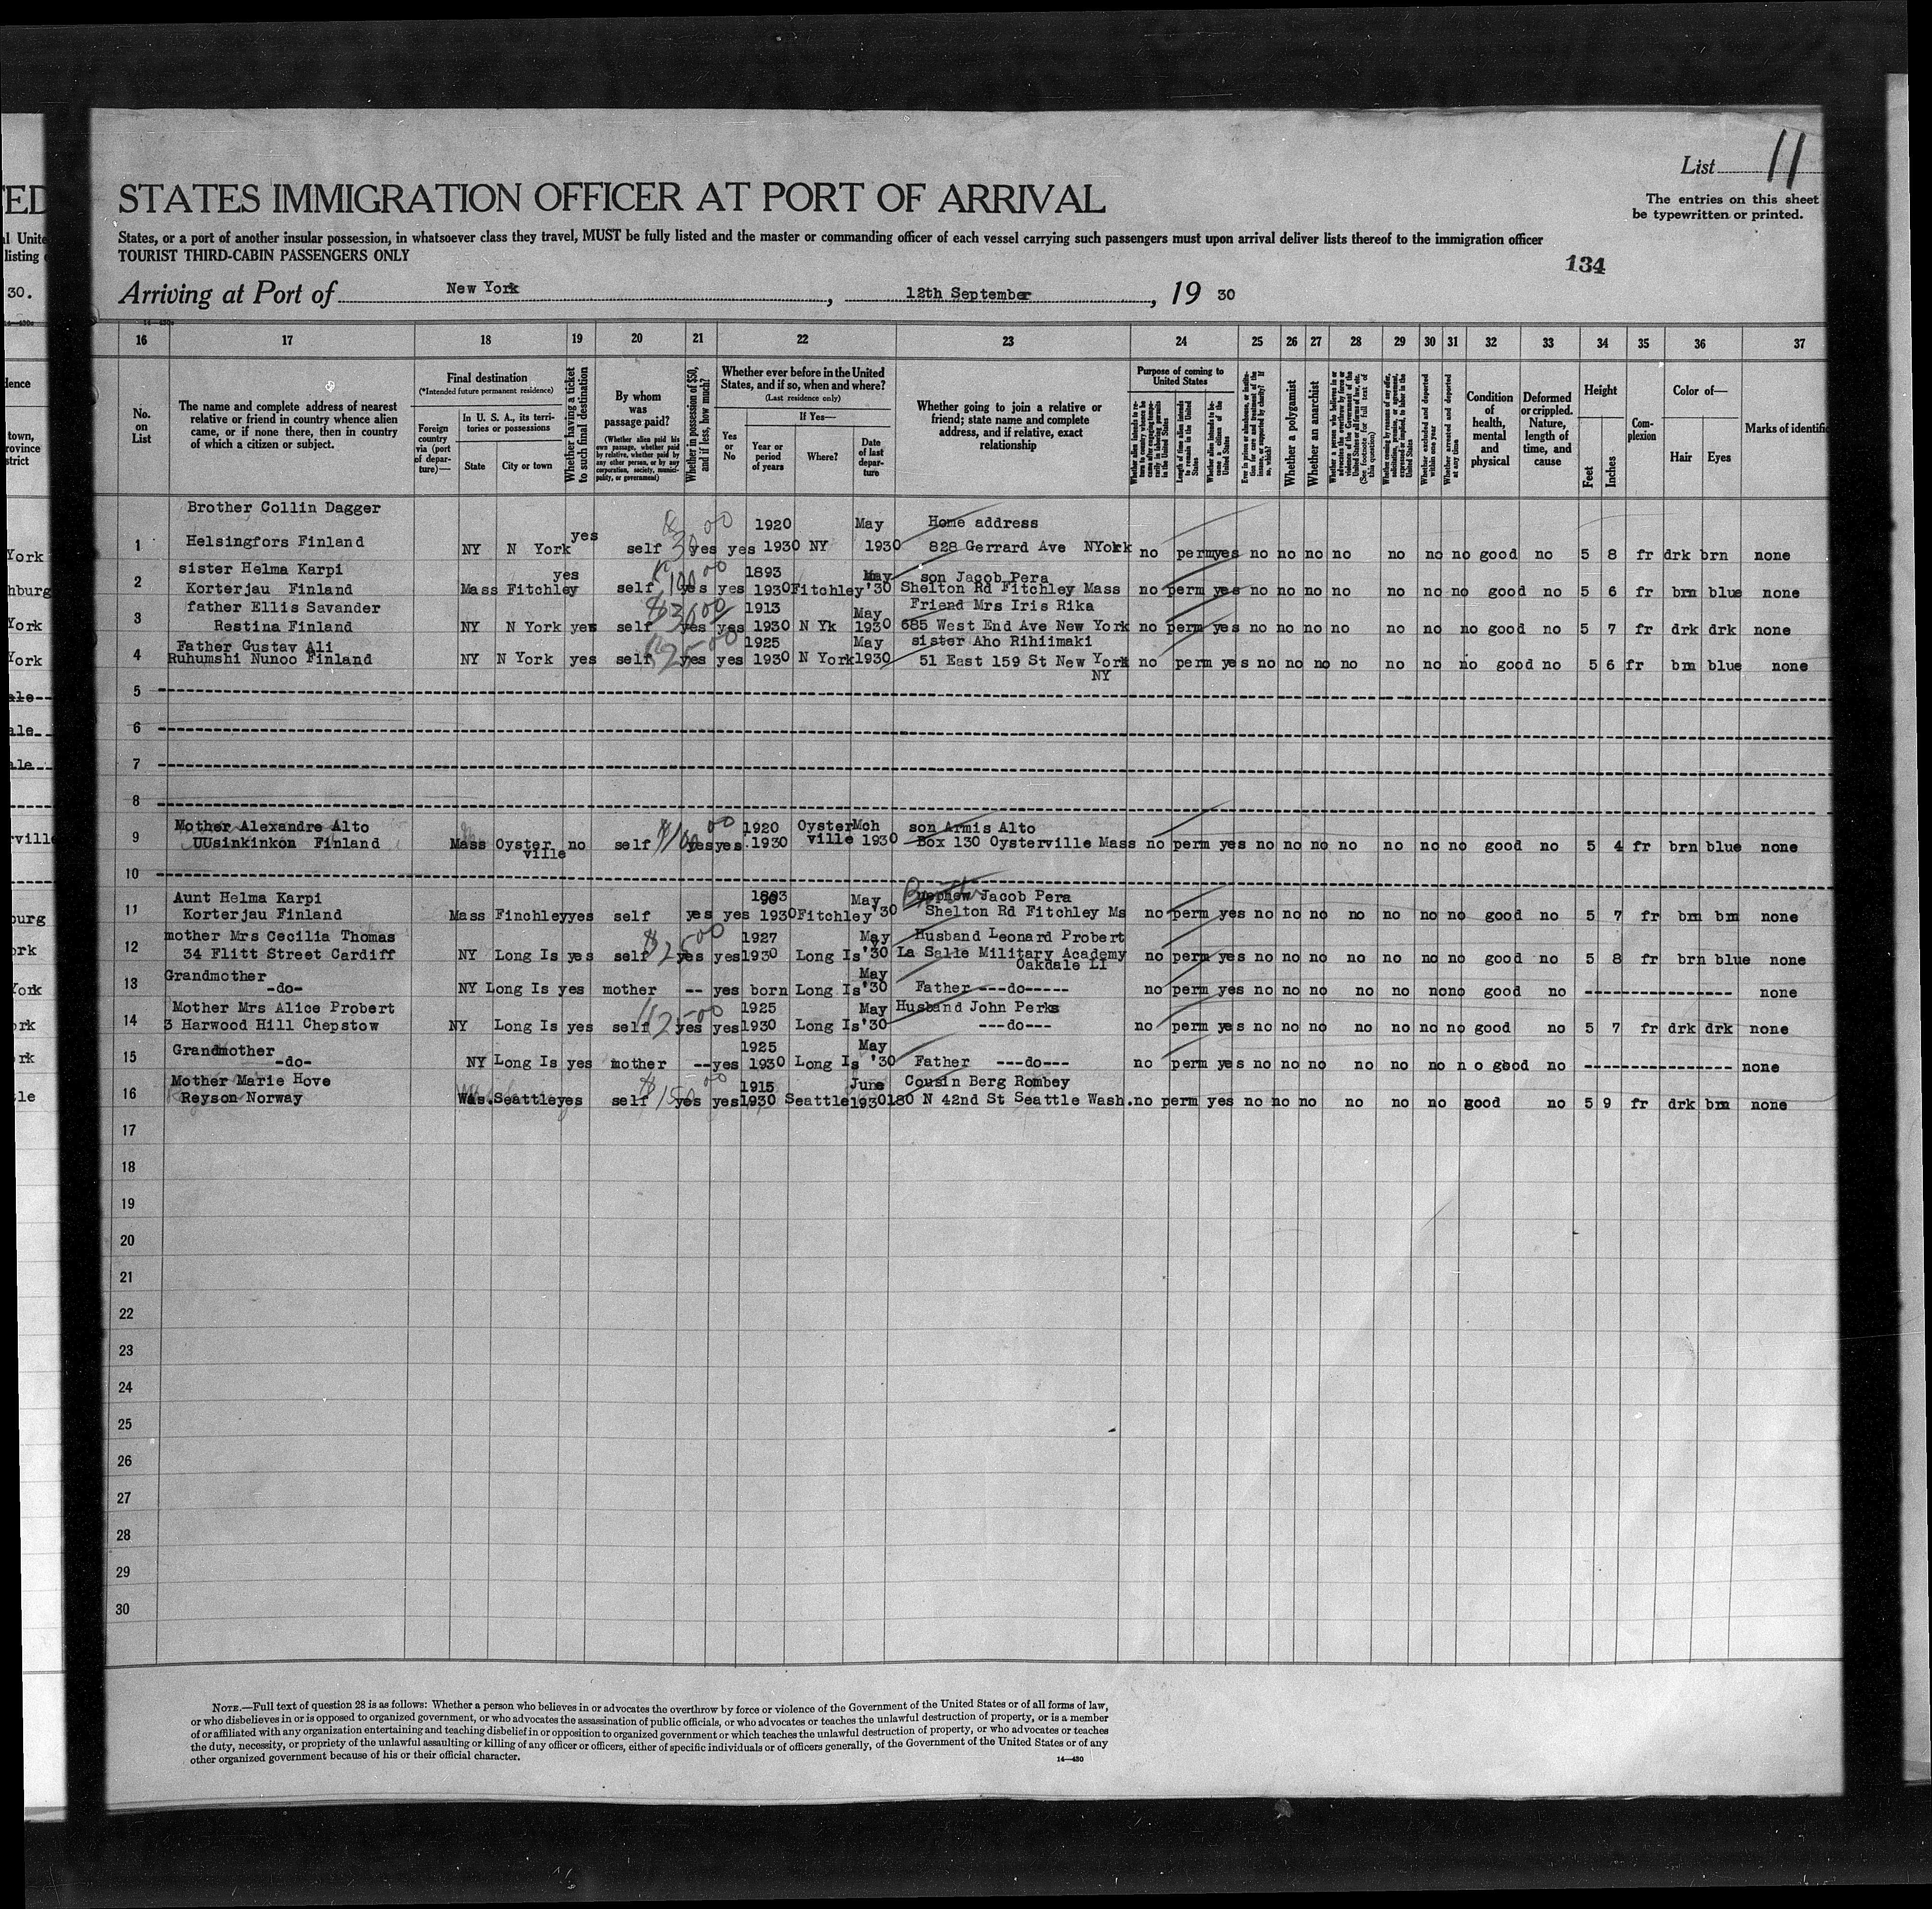 List 11
STATES IMMIGRATION OFFICER AT PORT OF ARRIVAL
The entries on this sheet
be typewritten or printed.
States, or a port of another insular possession, in whatsoever class they travel, MUST be fully listed and the master or commanding officer of each vessel carrying such passengers must upon arrival deliver lists thereof to the immigration officer
TOURIST THIRD-CABIN PASSENGERS ONLY
134
Arriving at Port of New York, 12th September, 19 30
16 17 18 19 20 21 22 23 24 25 26 27 28 29 30 31 32 33 34 35 36 37
No. on List
The name and complete address of nearest relative or friend in country whence alien came, or if none there, then in country of which a citizen or subject.
Final destination
(*Intended future permanent residence)
Foreign country via (port of departure)—
In U. S. A., its territories or possessions
State
City or town
Whether having a ticket to such final destination
By whom was passage paid?
(Whether alien paid his own passage, whether paid by relative, whether paid by any other person, or by any corporation, society, municipality, or government)
Whether in possession of $50, and if less, how much?
Whether ever before in the United States, and if so, when and where?
(Last residence only)
Yes or No
If Yes—
Year or period of years
Where?
Date of last departure
Whether going to join a relative or friend; state name and complete address, and if relative, exact relationship
Purpose of coming to United States
Whether a polygamist
Whether an anarchist
Whether excluded and deported within one year
Whether arrested and deported at any time
Condition of health, mental and physical
Deformed or crippled. Nature, length of time, and cause
Height
Feet
Inches
Complexion
Color of—
Hair
Eyes
Marks of identific
Brother Collin Dagger 1920 May Home address
1 Helsingfors Finland NY N York yes self yes yes 1930 NY 1930 828 Gerrard Ave NYork no perm yes no no no no no no no good no 5 8 fr drk brn none
sister Helma Karpi yes 1893 May son Jacob Pera
2 Korterjau Finland Mass Fitchley self 100 00 yes yes 1930 Fitchley '30 Shelton Rd Fitchley Mass no perm yes no no no no no no no good no 5 6 fr brn blue none
father Ellis Savander 1913 May Friend Mrs Iris Rika
3 Restina Finland NY N York yes self yes yes 1930 N Yk 1930 685 West End Ave New York no perm yes no no no no no no no good no 5 7 fr drk drk none
Father Gustav Ali 1925 May sister Aho Rihiimaki
4 Ruhumshi Nunoo Finland NY N York yes self 25 00 yes yes 1930 N York 1930 51 East 159 St New York no perm yes no no no no no no no good no 5 6 fr brn blue none
NY
5
6
7
8
Mother Alexandre Alto 1920 Oyster Mch son Armis Alto
9 UUsinkinkon Finland Mass Oyster ville no self $100 00 yes yes 1930 ville 1930 Box 130 Oysterville Mass no perm yes no no no no no no no good no 5 4 fr brn blue none
10
Aunt Helma Karpi 1893 May nephew Jacob Pera
11 Korterjau Finland Mass Finchley yes self yes yes 1930 Fitchley '30 Shelton Rd Fitchley Ms no perm yes no no no no no no no good no 5 7 fr brn brn none
mother Mrs Cecilia Thomas 1927 May Husband Leonard Probert
12 34 Flitt Street Cardiff NY Long Is yes self $25 00 yes yes 1930 Long Is '30 La Salle Military Academy no perm yes no no no no no no no good no 5 8 fr brn blue none
Oakdale LI
Grandmother May
13 -do- NY Long Is yes mother -- yes born Long Is '30 Father ---do----- no perm yes no no no no no no no good no ---------------- none
Mother Mrs Alice Probert 1925 May Husband John Perks
14 3 Harwood Hill Chepstow NY Long Is yes self 25 00 yes yes 1930 Long Is '30 ---do--- no perm yes no no no no no no no good no 5 7 fr drk drk none
Grandmother 1925 May
15 -do- NY Long Is yes mother -- yes 1930 Long Is '30 Father ---do--- no perm yes no no no no no no no good no ---------------- none
Mother Marie Hove 1915 June Cousin Berg Rombey
16 Reyson Norway Was. Seattle yes self $150 00 yes yes 1930 Seattle 1930 180 N 42nd St Seattle Wash. no perm yes no no no no no no good no 5 9 fr drk brn none
17
18
19
20
21
22
23
24
25
26
27
28
29
30
NOTE.—Full text of question 28 is as follows: Whether a person who believes in or advocates the overthrow by force or violence of the Government of the United States or of all forms of law,
or who disbelieves in or is opposed to organized government, or who advocates the assassination of public officials, or who advocates or teaches the unlawful destruction of property, or is a member
of or affiliated with any organization entertaining and teaching disbelief in or opposition to organized government or which teaches the unlawful destruction of property, or who advocates or teaches
the duty, necessity, or propriety of the unlawful assaulting or killing of any officer or officers, either of specific individuals or of officers generally, of the Government of the United States or of any
other organized government because of his or their official character.
14—430